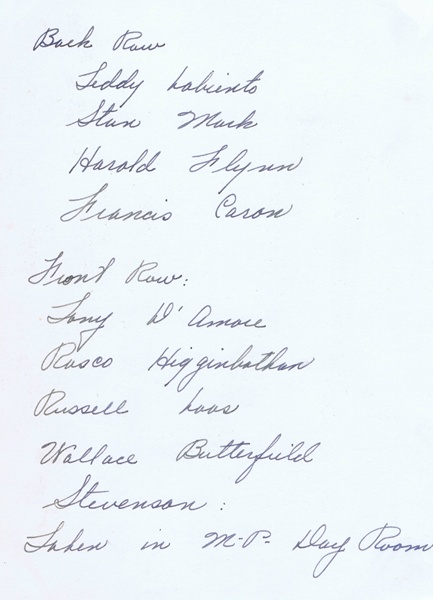 Back Row
Teddy Labiento
Stan Mack
Harold Flynn
Francis Caron
Front Row:
Tony D'Amore
Rosco Higginbothan
Russell Laos
Wallace Butterfield
Stevenson:
Taken in M-P- Day Room